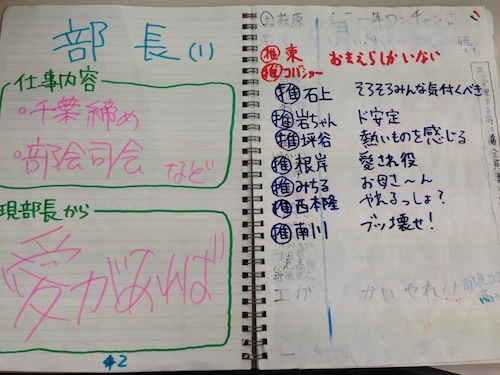 部長(1)
仕事内容
・千葉締め
・部会司会 など
現部長から
愛があれば
42
推 東 おまえらしかいない
推 コバショー
推 石上 そろそろみんな気付くべき
推 岩ちゃん ド安定
推 坪谷 熱いものを感じる
推 根岸 愛され役
推 みちる お母さ〜ん
推 西本隆 やれるっしょ?
推 南川 ブッ壊せ!